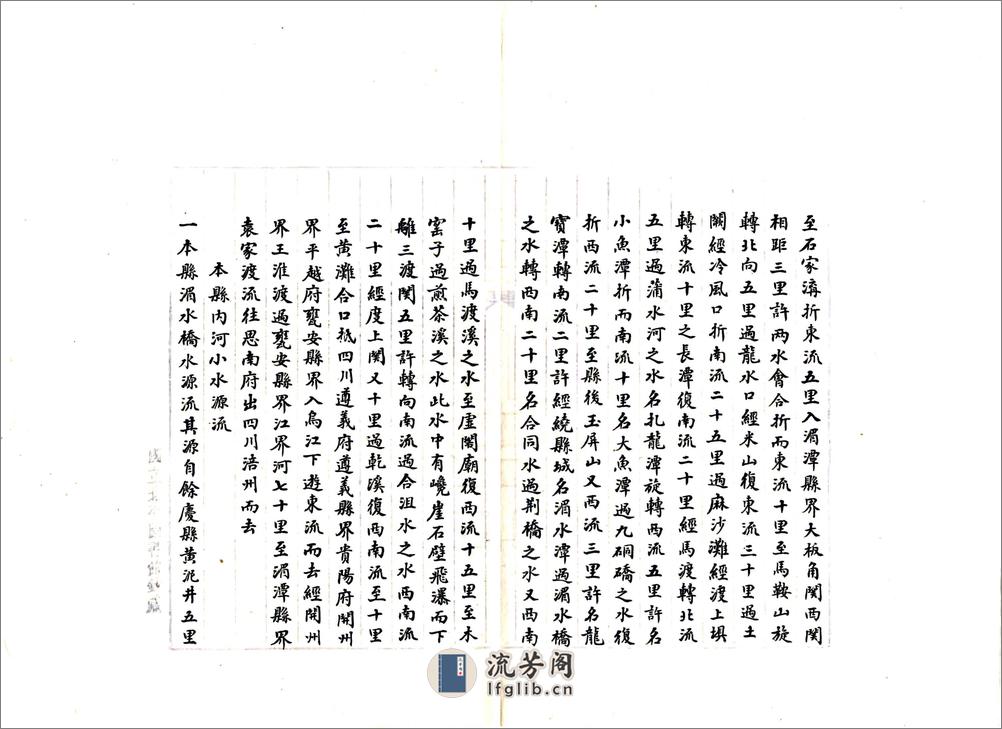 至石家濤折東流五里入湄潭縣界大板角関西関
相距三里許两水會合折而東流十里至馬鞍山旋
轉北向五里過龍水口經米山復東流三十里過土
闞經冷風口折南流二十五里過麻沙灘經渡上垻
轉東流十里之長潭復南流二十里經馬渡轉北流
五里過蒲水河之水名扎龍潭旋轉西流五里許名
小魚潭折而南流十里名大魚潭過九硐礄之水復
折西流二十里至縣後玉屏山又西流三里許名龍
寶潭轉南流二里許經繞縣城名湄水潭過湄水橋
之水轉西南二十里名合同水過荆橋之水又西南
十里過馬渡溪之水至虛閣廟復西流十五里至木
窰子過煎茶溪之水此水中有巉崖石壁飛瀑而下
離三渡関五里許轉向南流過合沮水之水西南流
二十里經度上関又十里過乾溪復西南流至十里
至黄灘合口抵四川遵義府遵義縣界貴陽府開州
界平越府甕安縣界入烏江下遊東流而去經開州
界王淮渡過甕安縣界江界河七十里至湄潭縣界
袁家渡流往思南府出四川涪州而去
本縣内河小水源流
一本縣湄水橋水源流其源自餘慶縣黄泥井五里
流芳阁
lfglib.cn